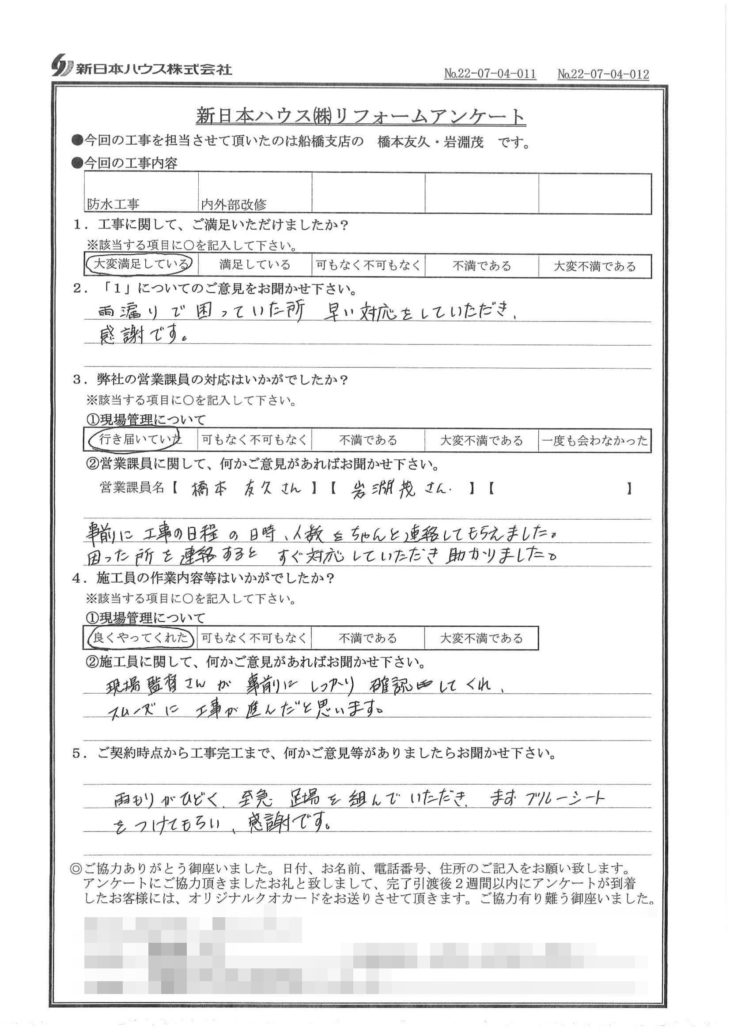 新日本ハウス株式会社 №22-07-04-011 №22-07-04-012
新日本ハウス㈱リフォームアンケート
●今回の工事を担当させて頂いたのは船橋支店の 橋本友久・岩淵茂 です。
●今回の工事内容
防水工事 内外部改修
1．工事に関して、ご満足いただけましたか？
※該当する項目に○を記入して下さい。
大変満足している 満足している 可もなく不可もなく 不満である 大変不満である
2．「1」についてのご意見をお聞かせ下さい。
雨漏りで困っていた所 早い対応をしていただき、
感謝です。
3．弊社の営業課員の対応はいかがでしたか？
※該当する項目に○を記入して下さい。
①現場管理について
行き届いていた 可もなく不可もなく 不満である 大変不満である 一度も会わなかった
②営業課員に関して、何かご意見があればお聞かせ下さい。
営業課員名【 橋本 友久さん 】【 岩淵茂さん 】【 】
事前に工事の日程の日時、人数をちゃんと連絡してもらえました。
困った所を連絡するとすぐ対応していただき助かりました。
4．施工員の作業内容等はいかがでしたか？
※該当する項目に○を記入して下さい。
①現場管理について
良くやってくれた 可もなく不可もなく 不満である 大変不満である
②施工員に関して、何かご意見があればお聞かせ下さい。
現場監督さんが事前にしっかり確認してくれ、
スムーズに工事が進んだと思います。
5．ご契約時点から工事完工まで、何かご意見等がありましたらお聞かせ下さい。
雨もりがひどく、至急 足場を組んでいただき、まずブルーシート
をつけてもらい、感謝です。
◎ご協力ありがとう御座いました。日付、お名前、電話番号、住所のご記入をお願い致します。
アンケートにご協力頂きましたお礼と致しまして、完了引渡後２週間以内にアンケートが到着
したお客様には、オリジナルクオカードをお送りさせて頂きます。ご協力有り難う御座いました。